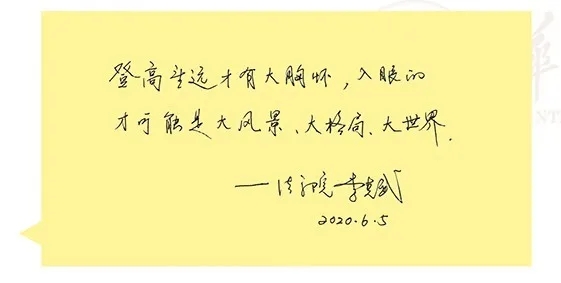 登高望远才有大胸怀，入眼的
才可能是大风景、大格局、大世界.
——法学院 李克武
2020.6.5